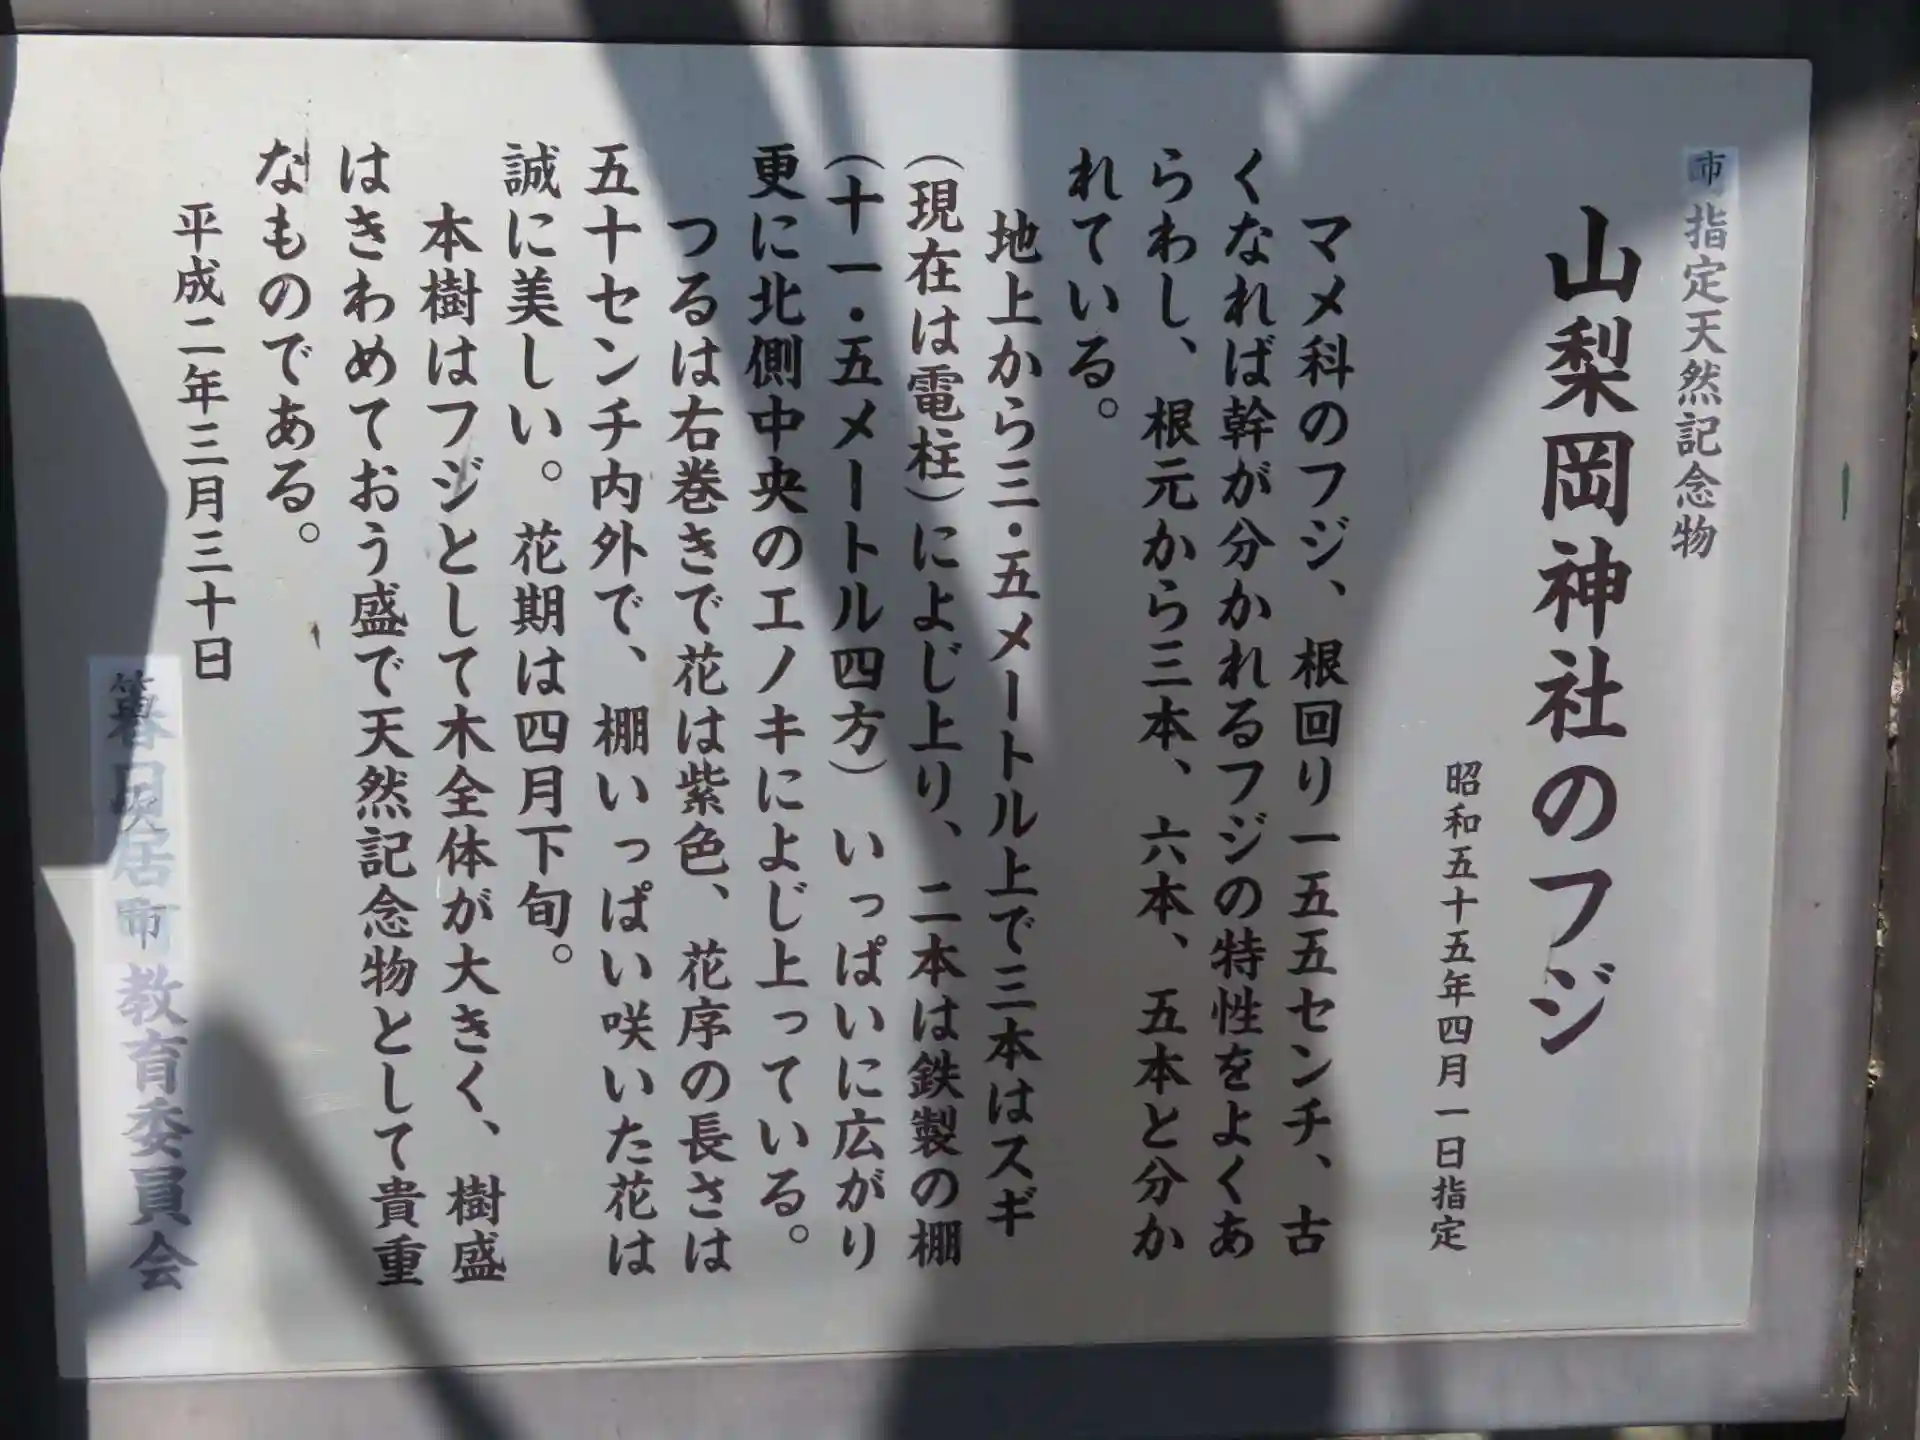 市指定天然記念物
山梨岡神社のフジ
昭和五十五年四月一日指定
マメ科のフジ、根回り一五五センチ、古
くなれば幹が分かれるフジの特性をよくあ
らわし、根元から三本、六本、五本と分か
れている。
地上から三・五メートル上で三本はスギ
(現在は電柱)によじ上り、二本は鉄製の棚
(十一・五メートル四方)いっぱいに広がり
更に北側中央のエノキによじ上っている。
つるは右巻きで花は紫色、花序の長さは
五十センチ内外で、棚いっぱい咲いた花は
誠に美しい。花期は四月下旬。
本樹はフジとして木全体が大きく、樹盛
はきわめておう盛で天然記念物として貴重
なものである。
平成二年三月三十日
教育委員会